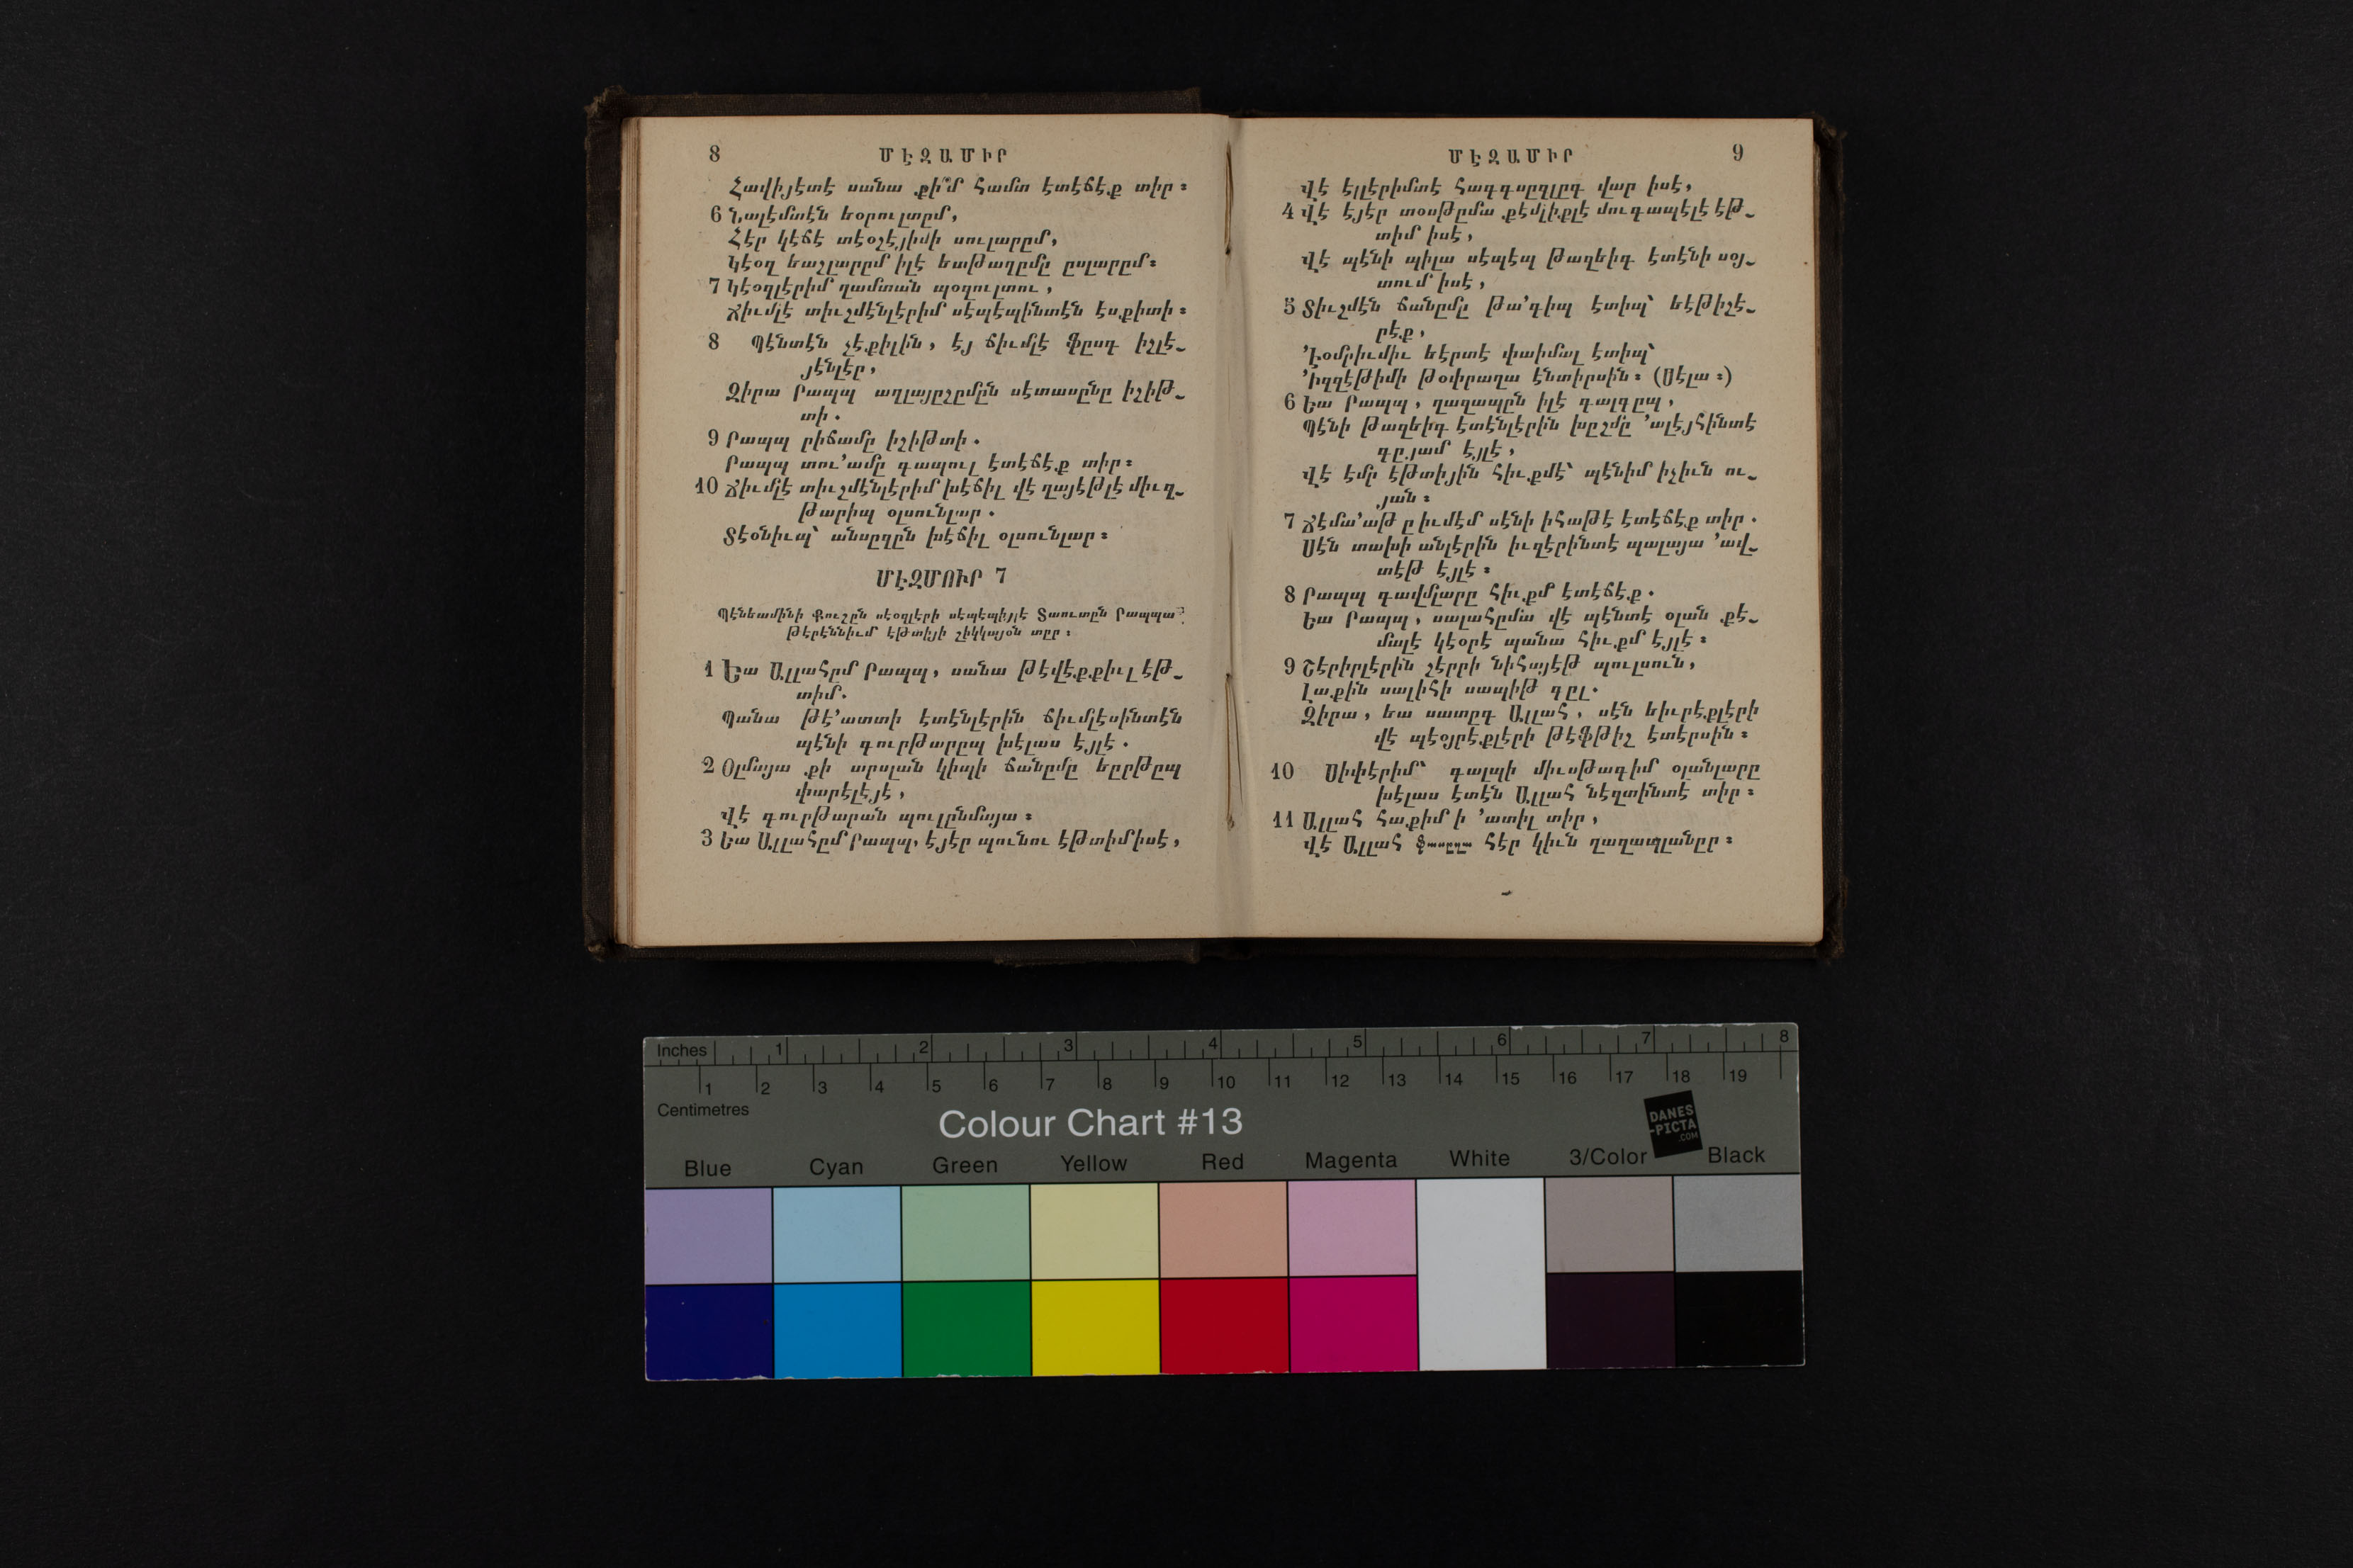 8
ՄԷԶԱՄԻՐ
Հավիյէտէ սանա քի՞մ համտ էտէճէք տիր։
6 Նալէմտէն եօրուլտըմ,
Հէր կէճէ տէօշէյիմի սուլարըմ,
Կէօզ եաշլարըմ իլէ եաթաղըմը ըսլարըմ։
7 Կէօզլէրիմ ղամտան պօզուլտու,
Ճիւմլէ տիւշմէնլէրիմ սէպէպինտէն էսքիտի։
8 Պէնտէն չէքիլին, էյ ճիւմլէ ֆըսգ իշլէ֊
յէնլէր,
Զիրա Րապպ աղլայըշըմըն սէտասընը իշիթ֊
տի.
9 Րապպ րիճամը իշիթտի.
Րապպ տու՚ամը գապուլ էտէճէք տիր։
10 Ճիւմլէ տիւշմէնլէրիմ խէճիլ վէ ղայէթլէ միւզ֊
թարիպ օլսունլար.
Տէօնիւպ՝ անսըզըն խէճիլ օլսունլար։
ՄԷԶՄՈՒՐ 7
Պէնեամինի Քուշըն սէօզլէրի սէպէպիյլէ Տաուտըն Րապպա
թէրէննիւմ էթտիյի շիկկայօն տըր։
1 Եա Ալլահըմ Րապպ, սանա թէվէքքիւլ էթ֊
տիմ.
Պանա թէ՚ատտի էտէնլէրին ճիւմլէսինտէն
պէնի գուրթարըպ խէլաս էյլէ.
2 Օլմայա քի արսլան կիպի ճանըմը եըրթըպ
փարէլէյէ,
Վէ գուրթարան պուլընմայա։
3 Եա Ալլահըմ Րապպ, էյէր պունու էթտիմ իսէ,
ՄԷԶԱՄԻՐ
9
Վէ էլլէրիմտէ հագգսըզլըգ վար իսէ,
4 Վէ էյէր տօսթըմա քէմլիքլէ մուգապէլէ էթ֊
տիմ իսէ,
Վէ պէնի պիլա սէպէպ թազեիգ էտէնի սօյ֊
տում իսէ,
5 Տիւշմէն ճանըմը թա՚գիպ էտիպ՝ եէթիշէ֊
րէք,
՚Էօմրիւմիւ եէրտէ փաիմալ էտիպ՝
՚Իզզէթիմի թօփրաղա էնտիրսին։ (Սէլա։)
6 Եա Րապպ, ղազապըն իլէ գալգըպ,
Պէնի թազեիգ էտէնլէրին խըշմը ՚ալէյհինտէ
գըյամ էյլէ,
Վէ էմր էթտիյին հիւքմէ՝ պէնիմ իչիւն ու֊
յան։
7 Ճէմա՚աթ ը իւմէմ սէնի իհաթէ էտէճէք տիր.
Սէն տախի անլէրին իւզէրինտէ պալայա ՚ավ֊
տէթ էյլէ։
8 Րապպ գավմլարը հիւքմ էտէճէք.
Եա Րապպ, սալահըմա վէ պէնտէ օլան քէ֊
մալէ կէօրէ պանա հիւքմ էյլէ։
9 Շէրիրլէրին շէրրի նիհայէթ պուլսուն,
Լաքին սալիհի սապիթ գըլ.
Զիրա, եա սատըգ Ալլահ, սէն եիւրէքլէրի
վէ պէօյրէքլէրի թէֆթիշ էտէրսին։
10 Սիփէրիմ՝ գալպի միւսթագիմ օլանլարը
խէլաս էտէն Ալլահ նէզտինտէ տիր։
11 Ալլահ հաքիմ ի ՚ատիլ տիր,
Վէ Ալլահ հէր կիւն ղազապլանըր։
Inches 1 2 3 4 5 6 7 8
1 2 3 4 5 6 7 8 9 10 11 12 13 14 15 16 17 18 19
Centimetres
Colour Chart #13
DANES
-PICTA
.COM
Blue Cyan Green Yellow Red Magenta White 3/Color Black